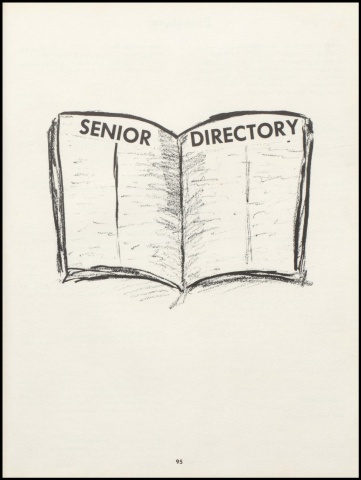 SENIOR DIRECTORY
95